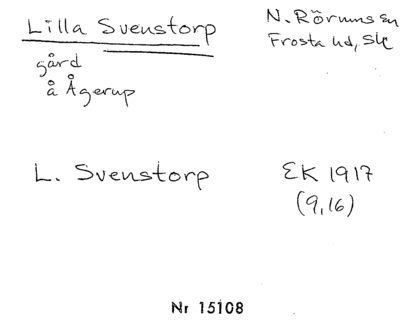 Lilla Svenstorp
gård
å Ågerup
N. Rörums sn
Frosta hd, Sk
L. Svenstorp
EK 1917
(9,16)
Nr 15108